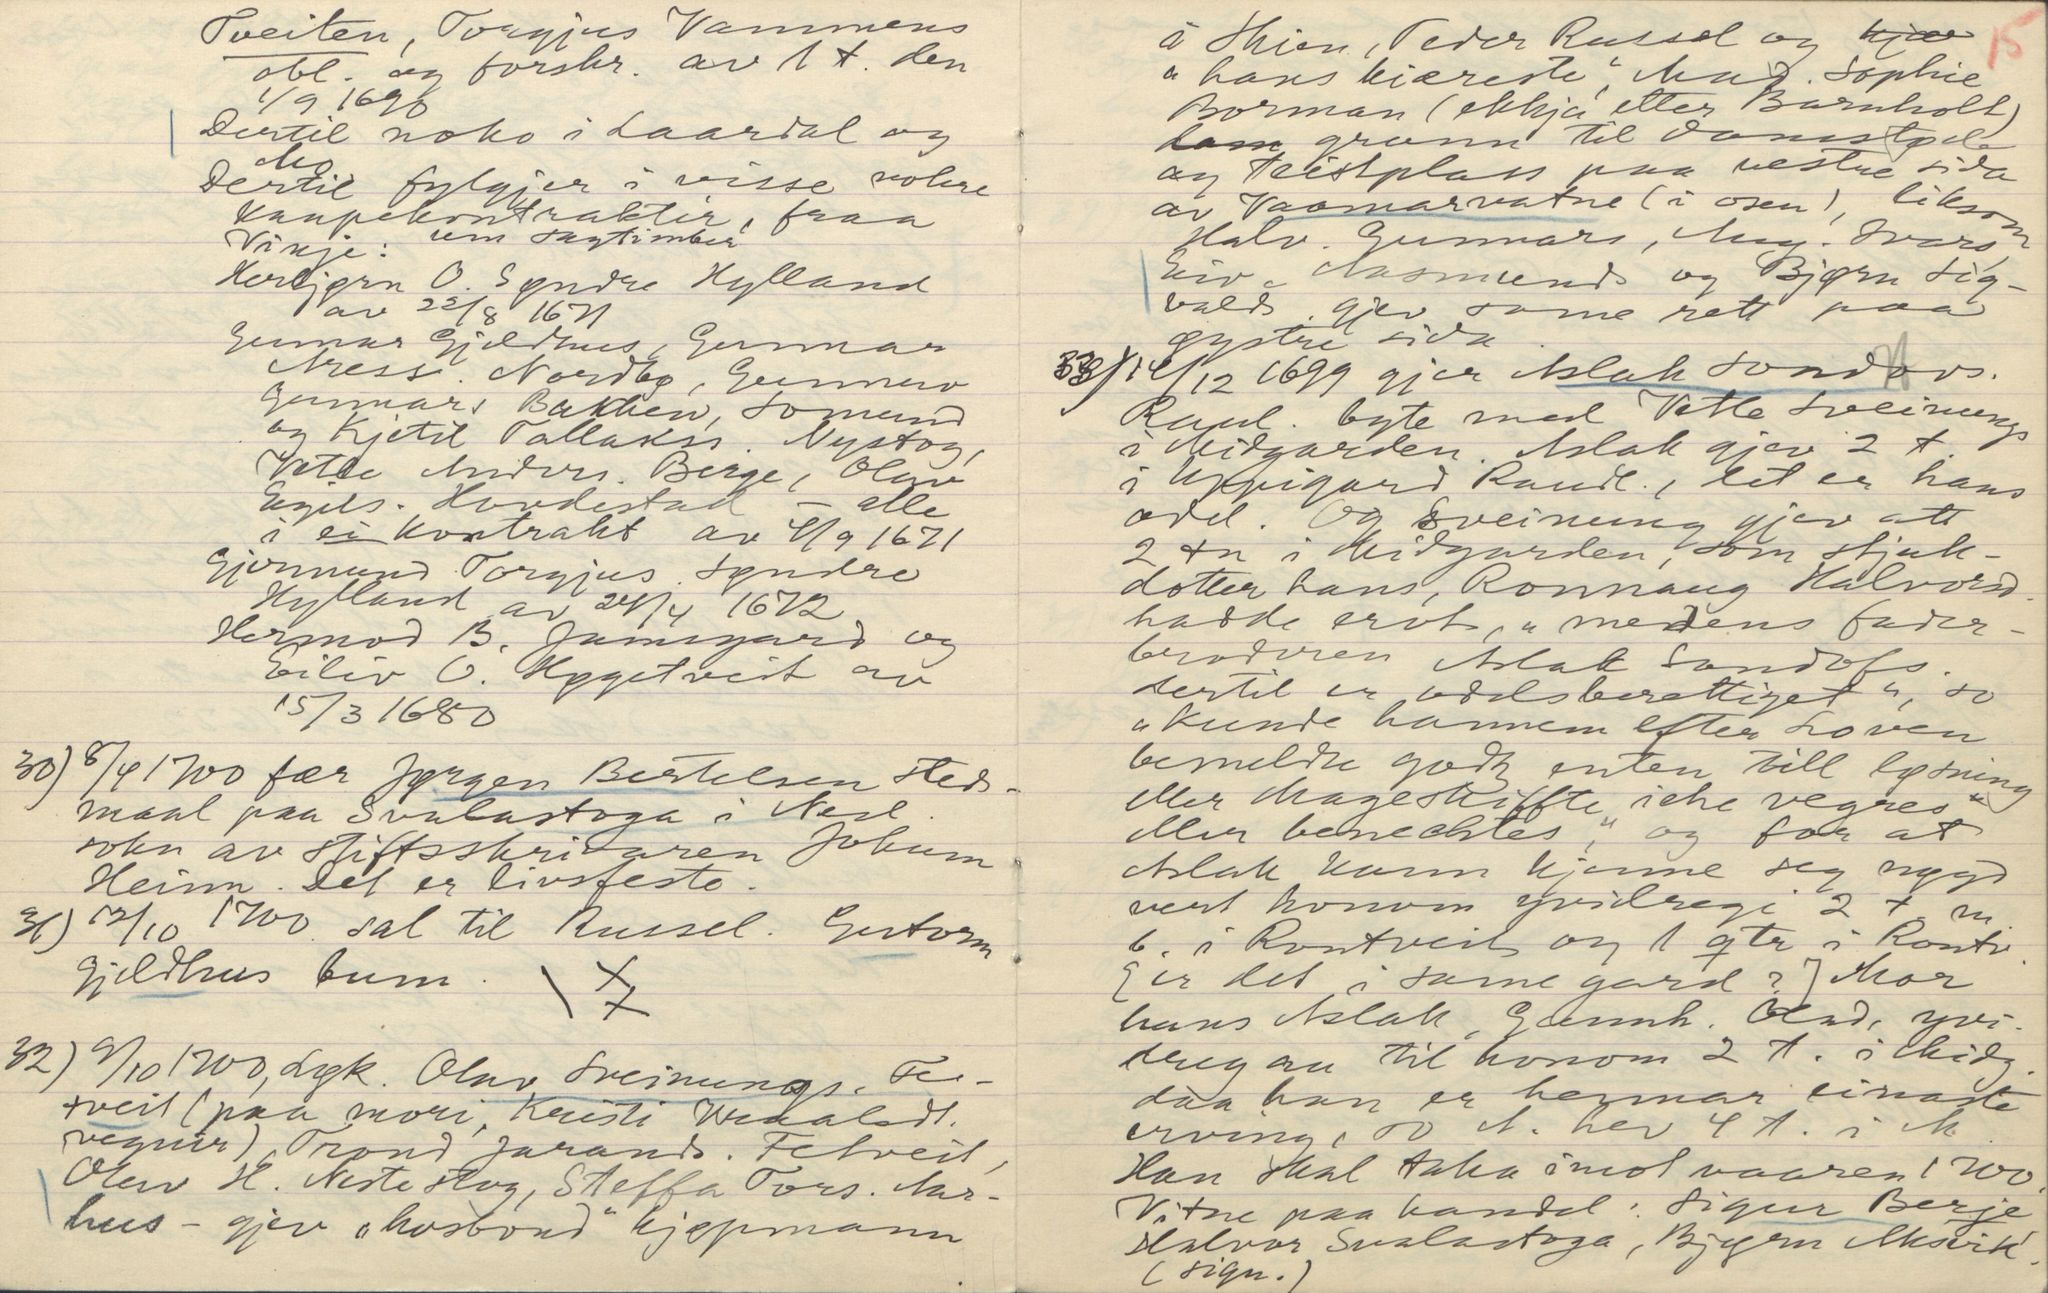 Tveiten, Torgjus Vammens
obl. og forskr. av 1 t. den
1/9 1690
Dertil noko i Laardal og
Mo
Dertil fylgjer i visse nokre
Kaupekontraktir, fraa
Vinje: um sagtimber
Herbjørn O. Syndre Hylland
av 22/8 1671
Gunnar Gjeldhus, Gunnar
Aress. Nordbø, Gunnuv
Gunnars Bakken, Somund
og Kjetil Tallakss. Nystog,
Vetle Anders. Berge, Olav
Egils. Hovdestad – alle
i ei kontrakt av 4/9 1671
Gjermund Torgjus. Syndre
Hylland av 24/4 1672
Hermod B. Jamsgard og
Eiliv O. Høgetveit av
15/3 1680
30) 8/4 1700 fær Jørgen Bertelsen steds-
maal paa Svalastoga i Nesl.
sokn av stiftsskrivaren Johum
Heim. Det er livsfeste.
31) 12/10 1700 sal til Russel. Guttorm
Gjeldhus bum.
32) 9/10 1700, Lgk. Olav Sveinungs. Fe-
tveit (paa mori, Kristi
vegnir), Trond Jarands. Fetveit,
Olav H. Nestestog, Steffa Tors. Aar-
hus – gjev "husbond" kjøpmann
15
å Skien, Peder Russel og kjær
"hans kiæreste," Mad. Sophie
Borman (ekkja etter Barnholt)
ham grunn til damstøde
og tristplass paa vestre sida
av Vaamarvatne (i osen), liksom
Halv. Gunnars, Aug. Ivars,
Eiv. Aasmunds og Bjørn Sig-
valds. gjev same rett paa
øystre sida.
33) 14/12 1699 gjer Aslak Sondovs.
Raul. byte med Vetle Sveinungs
i Midgarden. Aslak gjev 2 t.
i Uppigard Raudl., det er hans
odel. Og Sveinung gjev att
2 tn i Midgarden, som stjuk-
dotter hans, Ronnaug Halvorsd.
hadde ervt, "medens fader-
broderen Aslak Sondofs.
dertil er odelsberettiget", so
"kunde hannem efter Loven
bemeldte godtz enten till løsning
eller Mageskiffte iche vegres
eller benechtes," og for at
Aslak kunn kjenne seg nøgd
vert honom yvidregi 2 t. m.
b. i Rontveit og 1 qtr i Rontv.
[er det i same gard?] Mor
hans Aslak, Gunnh. Olavd. yvi-
dreg au til honom 2 t. i Midg.
daa han er hennar einaste
erving, so A. hev 4 t. i M.
Han skal taka imot vaaren 1700.
Vitne paa handel: Sigur Berje
Halvor Svalastoga, Bjørn Aksvik.
(sign.)